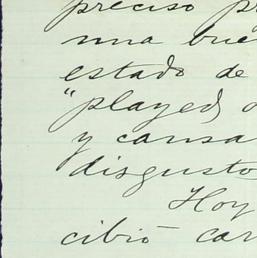 preciso
una bue
estado de
"played o
y causa
disgusto
Hoy
cibió car